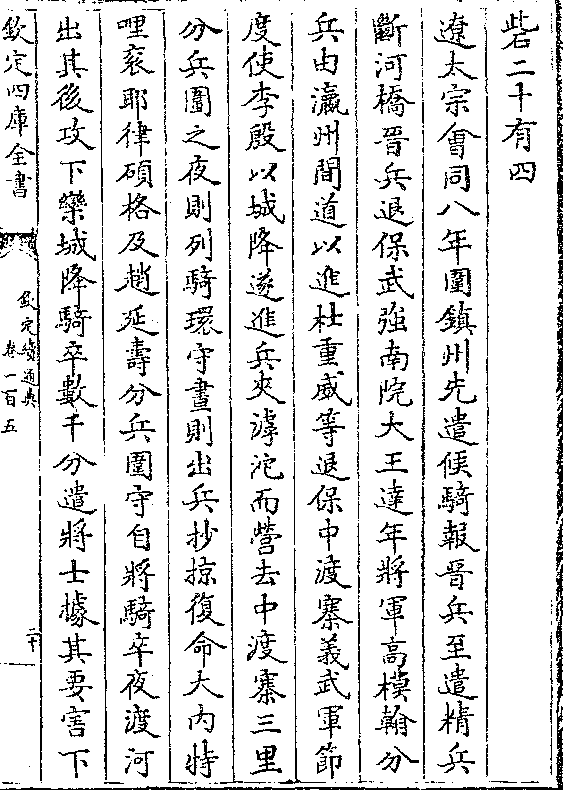 砦二十有四
遼太宗會同八年圍鎮州先遣候騎報晉兵至遣精兵
斷河橋晉兵退保武強南院大王達年將軍高模翰分
兵由瀛州間道以進杜重威等退保中渡寨義武軍節
度使李殷以城降遂進兵夾滹沱而營去中渡寨三里
分兵圍之夜則列騎環守晝則出兵抄掠復命大內特
哩衮耶律碩格及趙延壽分兵圍守自將騎卒夜渡河
出其後攻下欒城降騎卒數千分遣將士據其要害下
欽定四庫全書
欽定續通典
卷一百五
二十